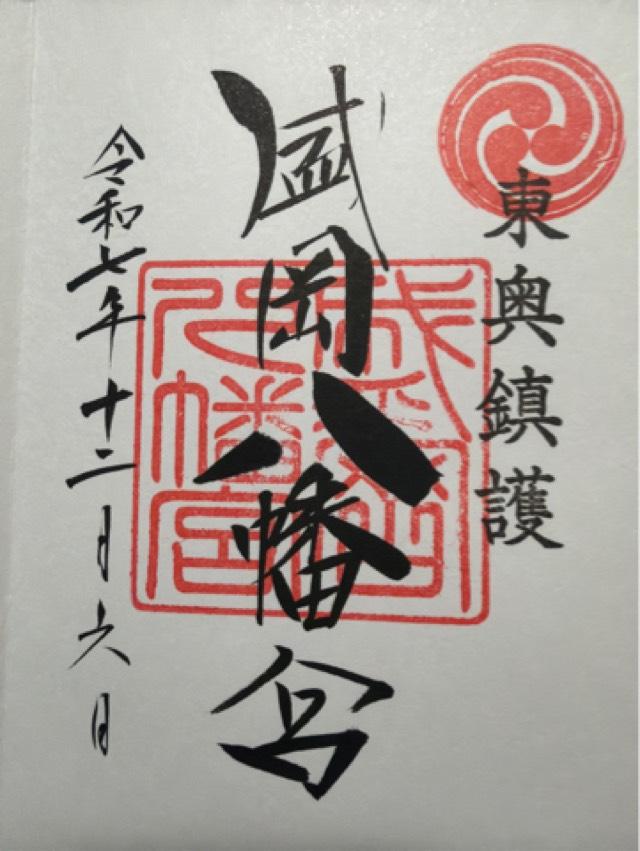 東奥鎮護
盛岡八幡宮
令和七年十二月六日
盛岡八幡宮